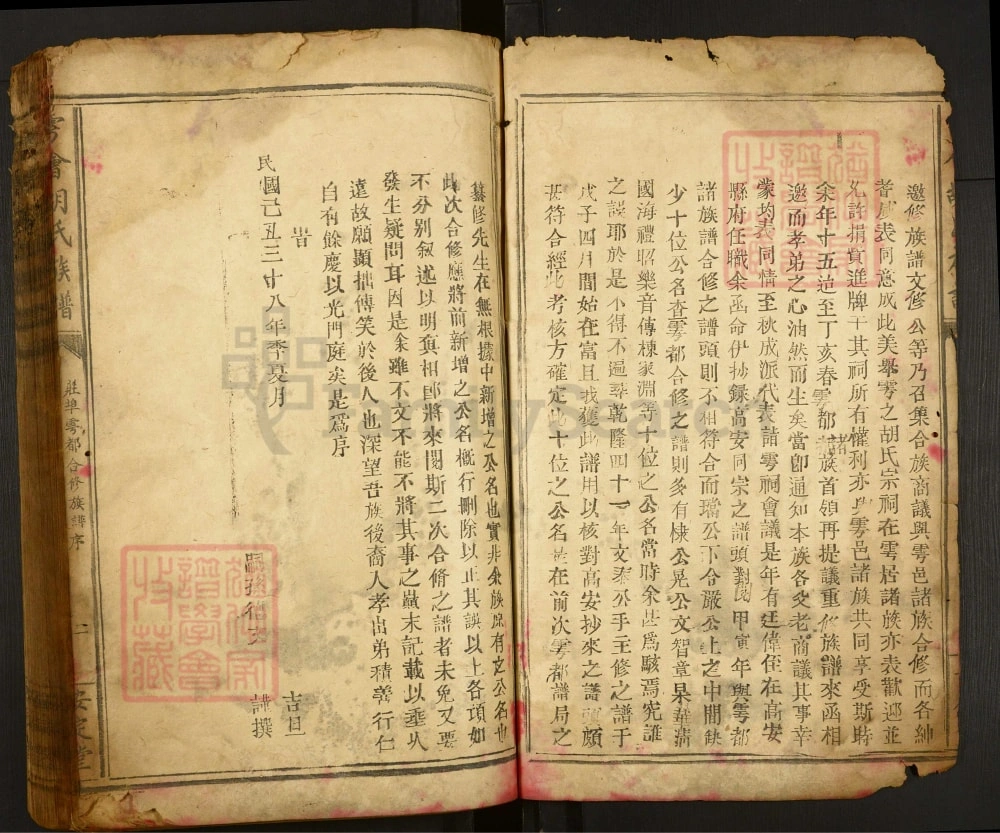 邀修族譜文修公等乃召集合族商議與雩邑諸族合修而各紳
耆成表同意成此美舉雩之胡氏宗祠在雩居諸族亦表歡迎並
允許捐資進牌于其祠所有權利亦與雩邑諸族共同享受斯時
余年十五迨至丁亥春雩都諸族首領再提議重修族譜來函相
邀而孝弟之心油然而生矣當即通知本族各父老商議其事幸
蒙均表同情至秋成派代表諸雩祠會議是年有廷偉侄在高安
縣府任職余函命伊抄錄高安同宗之譜頭對閱甲寅年與雩都
諸族譜合修之譜頭則不相符合而璫公下合嚴公上之中間缺
少十位公名查雩都合修之譜則多有棣公晃公文智章杲華清
國海禮昭樂音傳棟家淵等十位之公名當時余甚為駭焉究誰
之誤耶於是不得不遍尋乾隆四十一年文泰公手主修之譜于
戊子四月間始在富且我獲此譜用以核對高安抄來之譜頭頗
甚符合經此考核方確定此十位之公名是在前次雩都譜局之
纂修先生在無根據中新增之公名也實非余族原有之公名也
此次合修應將前新增之公名概行刪除以止其誤以上各項如
不分別叙述以明真相即將來閱斯二次合脩之譜者未免又要
發生疑問耳因是余雖不文不能不將其事之巔末記載以垂久
遠故願顯拙傳笑於後人也深望吾族後裔人孝出弟積善行仁
自有餘慶以光門庭矣是為序
旹
民國己丑三十八年季夏月 吉旦
嗣孫 謹撰
雩會胡氏族譜
莊埠雩都合修族譜序
安定堂